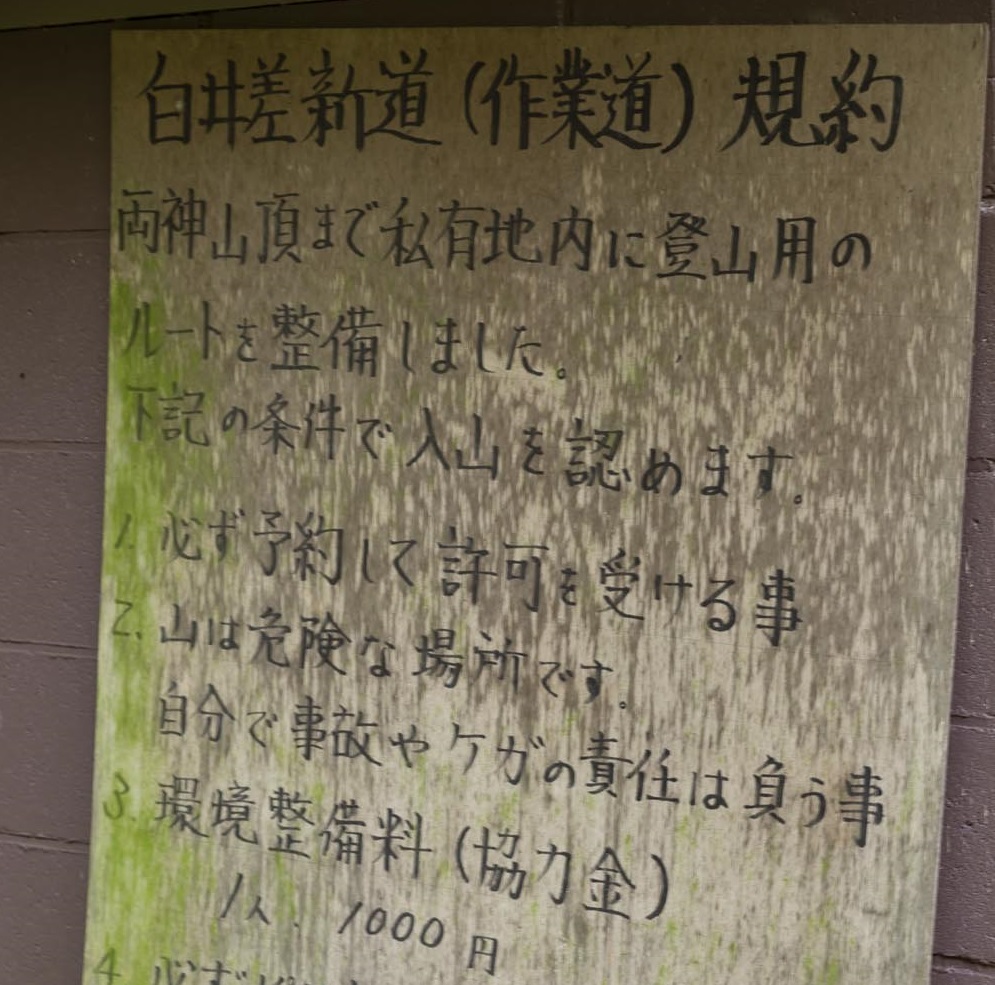 白井差新道(作業道)規約
両神山頂まで私有地内に登山用の
ルートを整備しました。
下記の条件で入山を認めます。
1. 必ず予約して許可を受ける事
2. 山は危険な場所です。
自分で事故やケガの責任は負う事
3. 環境整備料(協力金)
1人. 1000円
4. 必ず